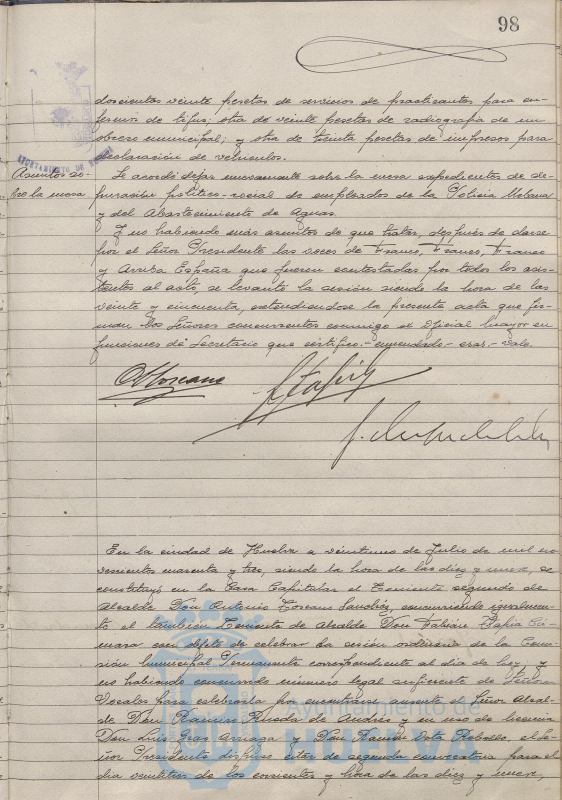 98
doscientas veinte pesetas de servicios de practicantes para en-
fermos de tifus; otra de veinte pesetas de radiografia de un
obrero municipal; y otra de treinta pesetas de impresos para
declaración de vehiculos.
AYUNTAMIENTO DE HUELVA
Asuntos so-
bre la mesa
Se acordó dejar nuevamente sobre la mesa expedientes de de-
puración político-social de empleados de la Policia Urbana
y del Abastecimiento de Aguas.
Y no habiendo más asuntos de que tratar, después de darse
por el Señor Presidente las voces de Franco, Franco, Franco
y Arriba España que fueron contestadas por todos los asis-
tentes al acto, se levantó la sesión siendo la hora de las
veinte y cincuenta, extendiendose la presente acta que fir-
man los Señores concurrentes conmigo el Oficial Mayor en
funciones de Secretario que certifico.- enmendado- eras.- vale.
En la ciudad de Huelva a veintiuno de Julio de mil no-
vecientos cuarenta y tres, siendo la hora de las diez y nueve, se
constituyó en la Casa Capitular el Teniente segundo de
Alcalde Don Antonio Toscano Sanchez, concurriendo igualmen-
te el también Teniente de Alcalde Don Fabián Tapia Gá-
mara con objeto de celebrar la sesión ordinaria de la Comi-
sión Municipal Permanente correspondiente al dia de hoy, y
no habiendo concurrido número legal suficiente de Señores
Vocales para celebrarla por encontrarse ausente el Señor Alcal-
de Don Ramiro de Andrés y en uso de licencia
Don Luis Arriaga y Don Rebollo, el Se-
ñor Presidente dispuso citar de segunda convocatoria para el
dia veintitres de los corrientes y hora de las diez y nueve,
Ayuntamiento de
HUELVA